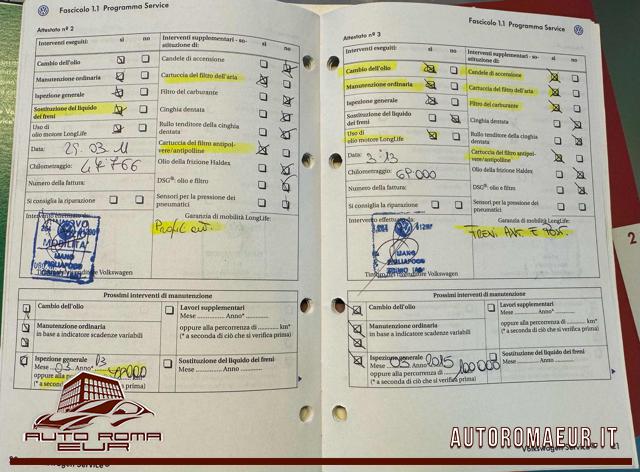 Fascicolo 1.1 Programma Service
Attestato nº 2
Interventi eseguiti:
sì
no
Interventi supplementari - so-
stituzione di:
sì
no
Cambio dell'olio
Candele di accensione
Manutenzione ordinaria
Cartuccia del filtro dell'aria
Ispezione generale
Filtro del carburante
Sostituzione del liquido
dei freni
Cinghia dentata
Uso di
olio motore LongLife
Rullo tenditore della cinghia
dentata
Data: 29.03.11
Cartuccia del filtro antipol-
vere/antipolline
Chilometraggio: 47766
Olio della frizione Haldex
Numero della fattura:
DSG®: olio e filtro
Si consiglia la riparazione
Sensori per la pressione dei
pneumatici
Intervento effettuato da:
Garanzia di mobilità LongLife:
MOBILITA'
LIANO
PIGLIAPOCO
Timbro del rivenditore Volkswagen
Prossimi interventi di manutenzione
Cambio dell'olio
Lavori supplementari
Mese ........ Anno* ........
Manutenzione ordinaria
in base a indicatore scadenze variabili
oppure alla percorrenza di ........ km*
(* a seconda di ciò che si verifica prima)
Ispezione generale
Mese 03 Anno* 13
oppure alla percorrenza di
(* a seconda di ciò che si verifica prima)
Sostituzione del liquido dei freni
Mese ........ Anno ........
Fascicolo 1.1 Programma Service
Attestato nº 3
Interventi eseguiti:
sì
no
Interventi supplementari - so-
stituzione di:
sì
no
Cambio dell'olio
Candele di accensione
Manutenzione ordinaria
Cartuccia del filtro dell'aria
Ispezione generale
Filtro del carburante
Sostituzione del liquido
dei freni
Cinghia dentata
Uso di
olio motore LongLife
Rullo tenditore della cinghia
dentata
Data: 3.13
Cartuccia del filtro antipol-
vere/antipolline
Chilometraggio: 69.000
Olio della frizione Haldex
Numero della fattura:
DSG®: olio e filtro
Si consiglia la riparazione
Sensori per la pressione dei
pneumatici
Intervento effettuato da:
Garanzia di mobilità LongLife:
FRENI ANT. E POST.
LIANO
PIGLIAPOCO
Prossimi interventi di manutenzione
Cambio dell'olio
Lavori supplementari
Mese ........ Anno* ........
Manutenzione ordinaria
in base a indicatore scadenze variabili
oppure alla percorrenza di ........ km*
(* a seconda di ciò che si verifica prima)
Ispezione generale
Mese 03 Anno* 2015
oppure alla percorrenza di 100000
(* a seconda di ciò che si verifica prima)
Sostituzione del liquido dei freni
Mese ........ Anno ........
2
AUTO ROMA
EUR
AUTOROMAEUR.IT
Volkswagen Service®
21